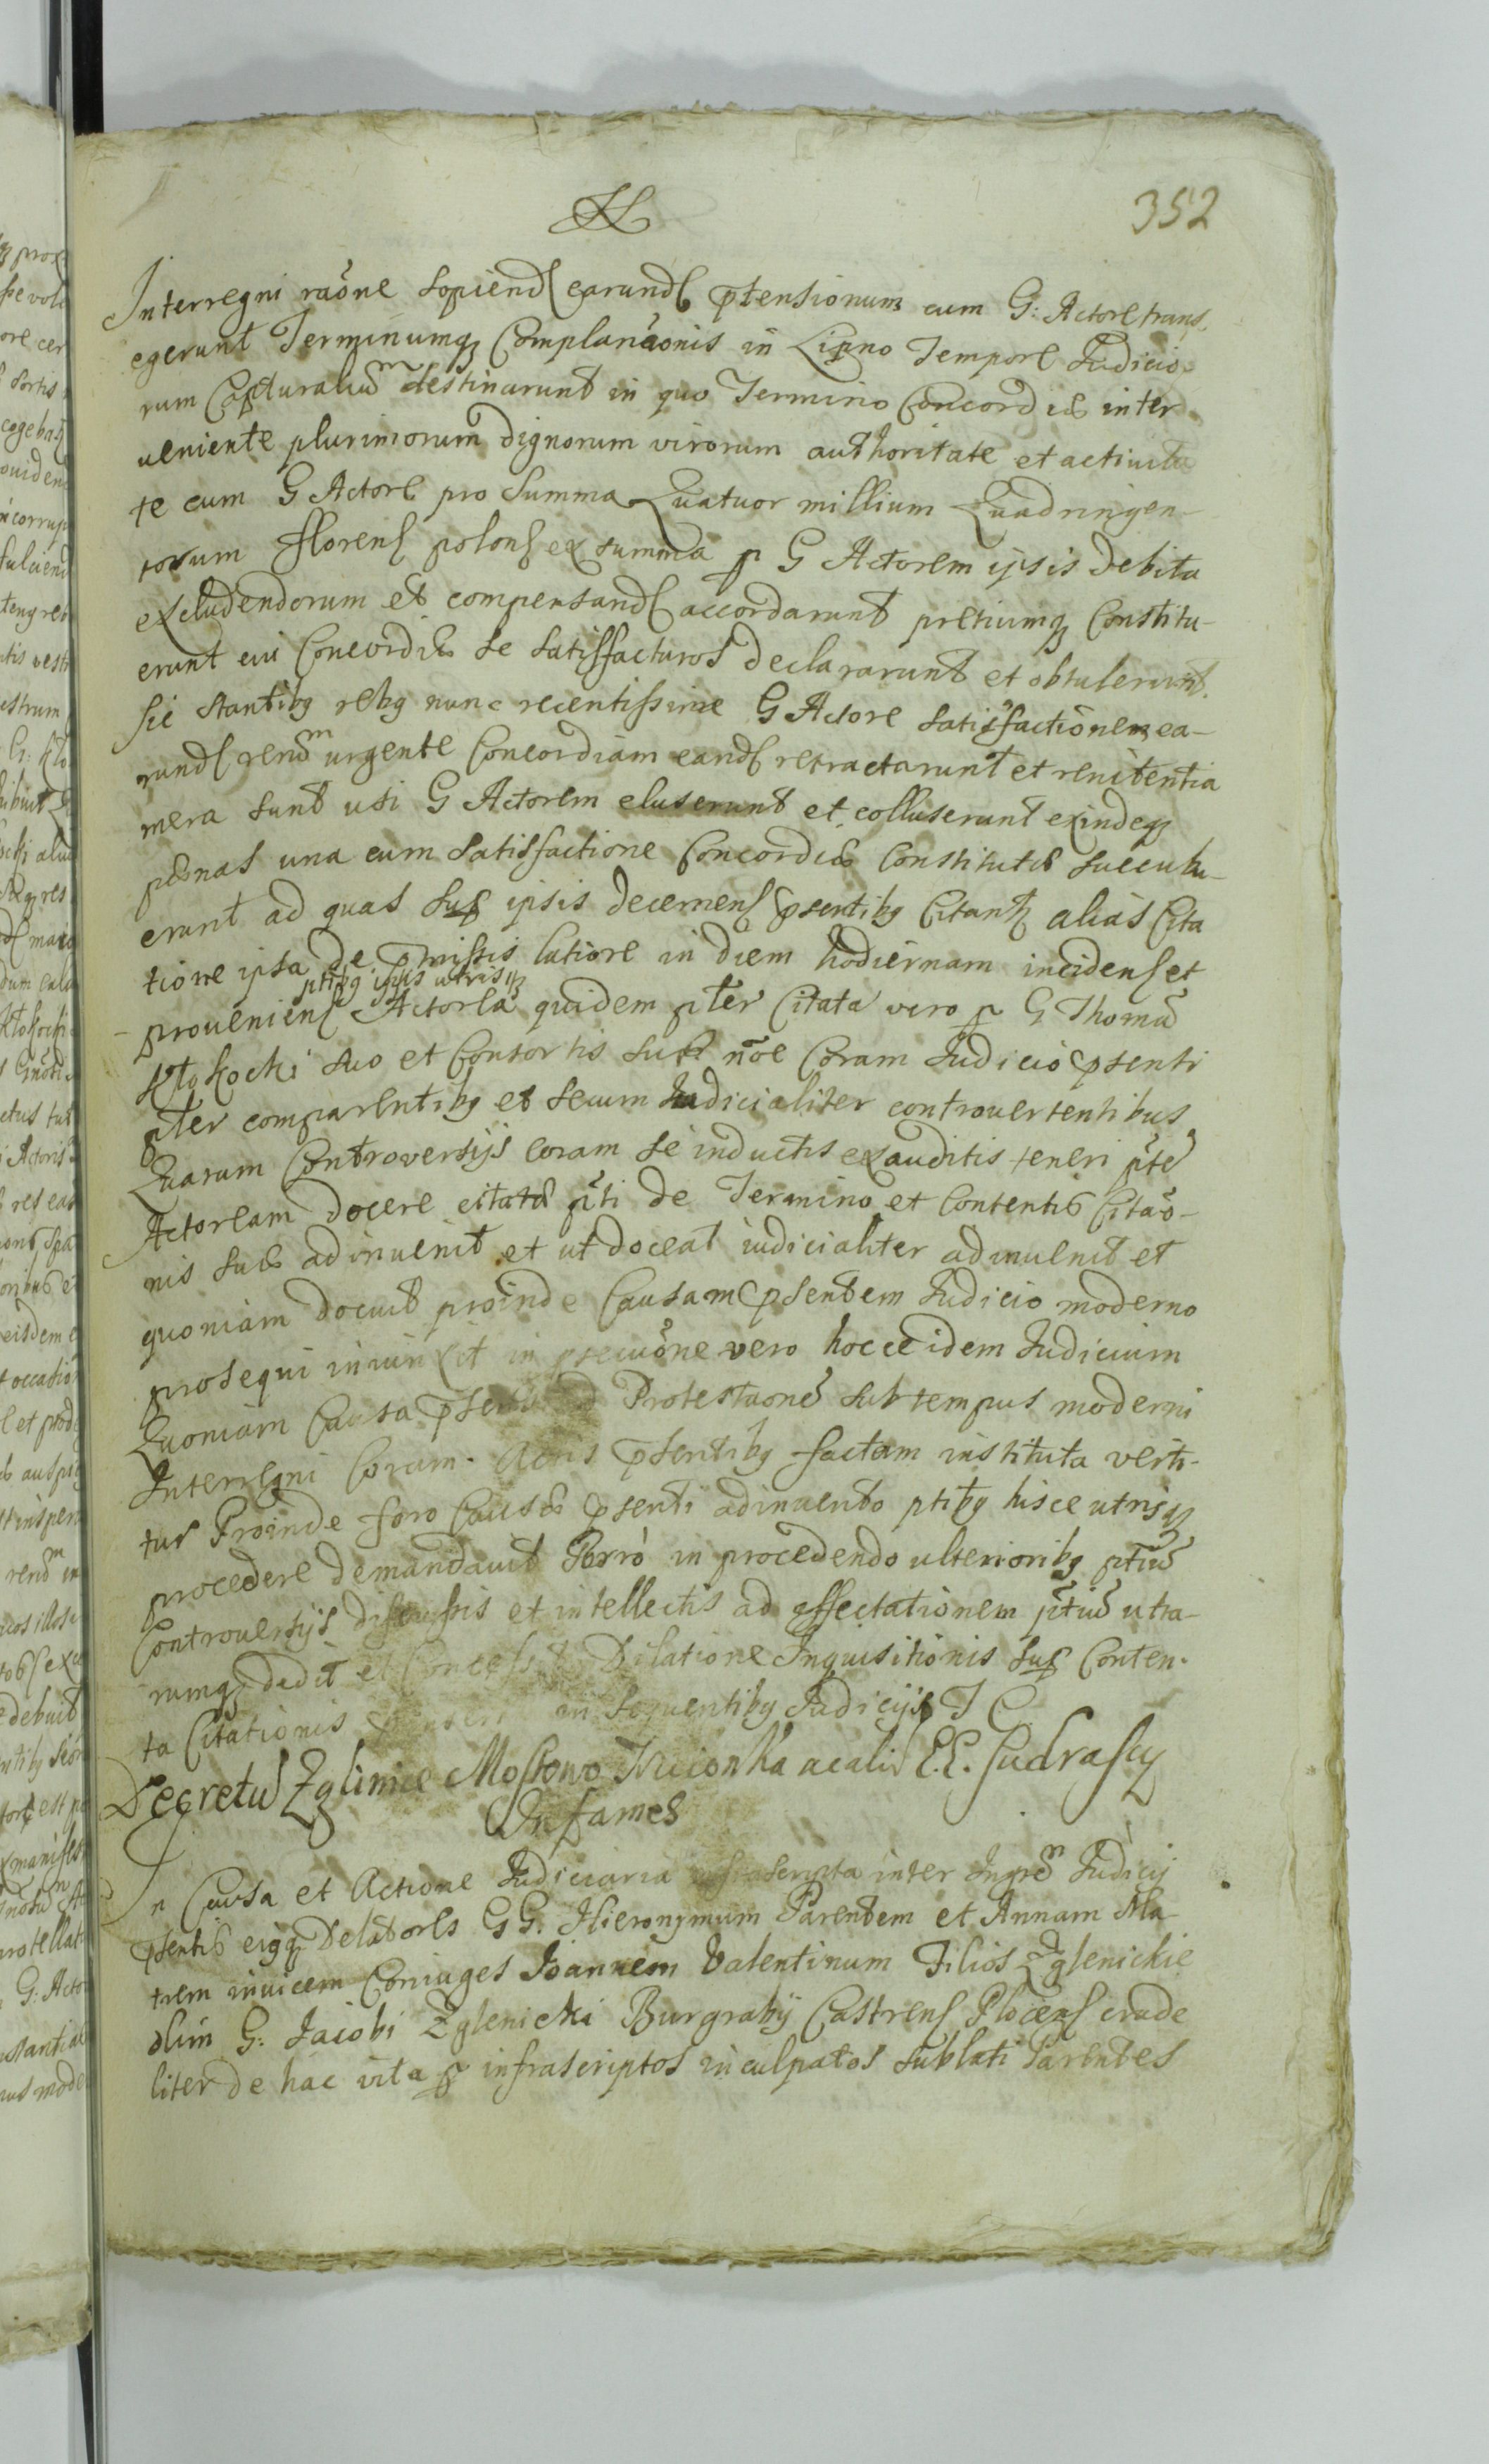 352
Interregni raõne sopiend earund ptensionum cum G: Actore trans
egerunt Terminumq Complanaõnis in Lipno Tempore Judicio
rum Capturaliũm destinarunt in quo Termino Concordiæ inter
ueniente plurimorum dignorum virorum authoritate et actiuita
te cum G Actore pro Summa Quatuor millium Quadringen
torum floren polon ex summa p G Actorem ipsis debita
excludendorum et compensand accordarunt pretiumq Constitu-
erunt cui Concordiæ se satisfacturos declararunt et obtulerunt.
Sic stantibq rebq nunc recentissime G Actore satisfactionem ea-
rund renũm urgente Concordiam eand retractarunt et renitentia
mera sunt usi G Actorem eluserunt et colluserunt exindeq
pœnas una cum satisfactione Concordiæ Constitutæ succubu-
erunt ad quas sup ipsis decernen psentibq Citant alias Cita
tione ipsa de pmissis latiore in diem hodiernam inciden et
ptibq ipsis utrisq
prouenien Actorea quidem pter Citata vero p G Thomã
Kłokocki suo et Consortis suæ nõe Coram Judicio psenti
pter comparentibq et secum Judicialiter controuertentibus
Quarum Controversijs coram se inductis exauditis teneri ptẽ
Actoream docere citatæ pti de Termino et Contentis Citaõ-
nis suæ adinuenit et ut doceat iudicialiter adinuenit et
quoniam docuit proinde Causam psentem Judicio moderno
prosequi iniunxit in psecuõne vero hocce idem Judicium
Quoniam Causa psens ad Protestaonẽ sub tempus moderni
Interregni Coram Actis psentibq factam instituta verti-
tur Proinde foro Causæ psenti adinuento ptibq hisce utrisq
procedere demandauit Porrò in procedendo ulterioribq ptiũ
Controuersijs discussis et intellectis ad affectationem ptiũ utra-
rumq dedit et Concessit Dilatione Inquisitionis sup Conten-
ta Citationis in sequentibq Judicijs T C
Decretũ Zglinice Mostowo acaliũ E.E.
Infames
In Causa et Actione Judiciaria infrascripta inter Judicij
psentis eiqq Delatores GG. Hieronymum Parentem et Annam Ma-
trem inuicem Coniuges Joannem Valentinum Filios Zglenickie
olim G: Jacobi Zglenicki Burgrabij Castren Plocen crude
liter de hac vita p infrascriptos inculpatos sublati Parentes